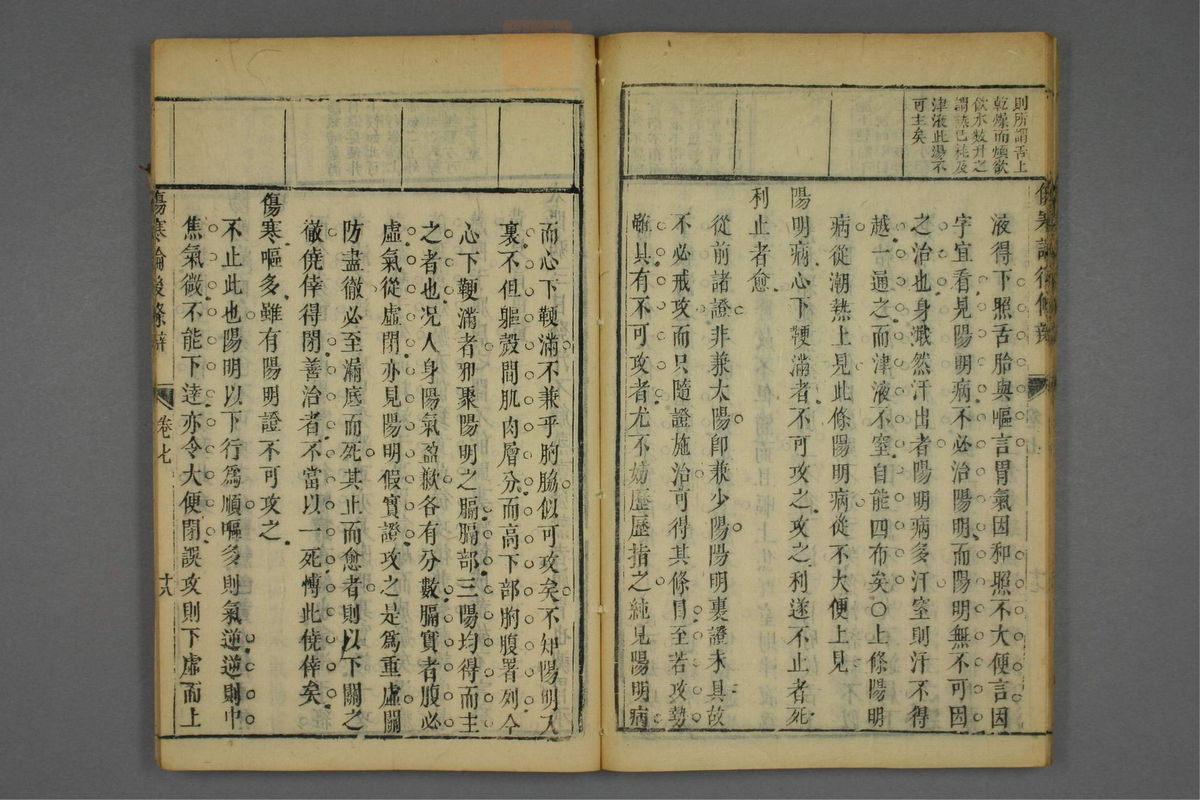 則所謂舌上
乾燥而煩欲
飲水數升之
謂熱已耗及
津液此湯不
可主矣
液得下照舌胎與嘔言胃氣因和照不大便言因
字宜看見陽明病不必治陽明而陽明無不可因
之治也身濈然汗出者陽明病多汗窒則汗不得
越一通之而津液不窒自能四布矣○上條陽明
病從潮熱上見此條陽明病從不大便上見
陽明病心下鞕滿者不可攻之攻之利遂不止者死
利止者愈
從前諸證非兼太陽卽兼少陽陽明裏證未具故
不必戒攻而只隨證施治可得其條目至若攻勢
雖具有不可攻者尤不妨歷歷指之純見陽明病
而心下鞕滿不兼乎胸脇似可攻矣不知陽明入
裏不但軀殼間肌肉層分而高下部胸腹署列今
心下鞕滿者邪聚陽明之膈膈部三陽均得而主
之者也况人身陽氣盈歉各有分數膈實者腹必
虛氣從虛閉亦見陽明假實證攻之是爲重虛關
防盡徹必至漏底而死其止而愈者則以下關之
徹僥倖得閉善治者不當以一死愽此僥倖矣
傷寒嘔多雖有陽明證不可攻之
不止此也陽明以下行爲順嘔多則氣逆逆則中
焦氣微不能下逹亦令大便閉誤攻則下虛而上
傷寒論後條辯
卷七
十六